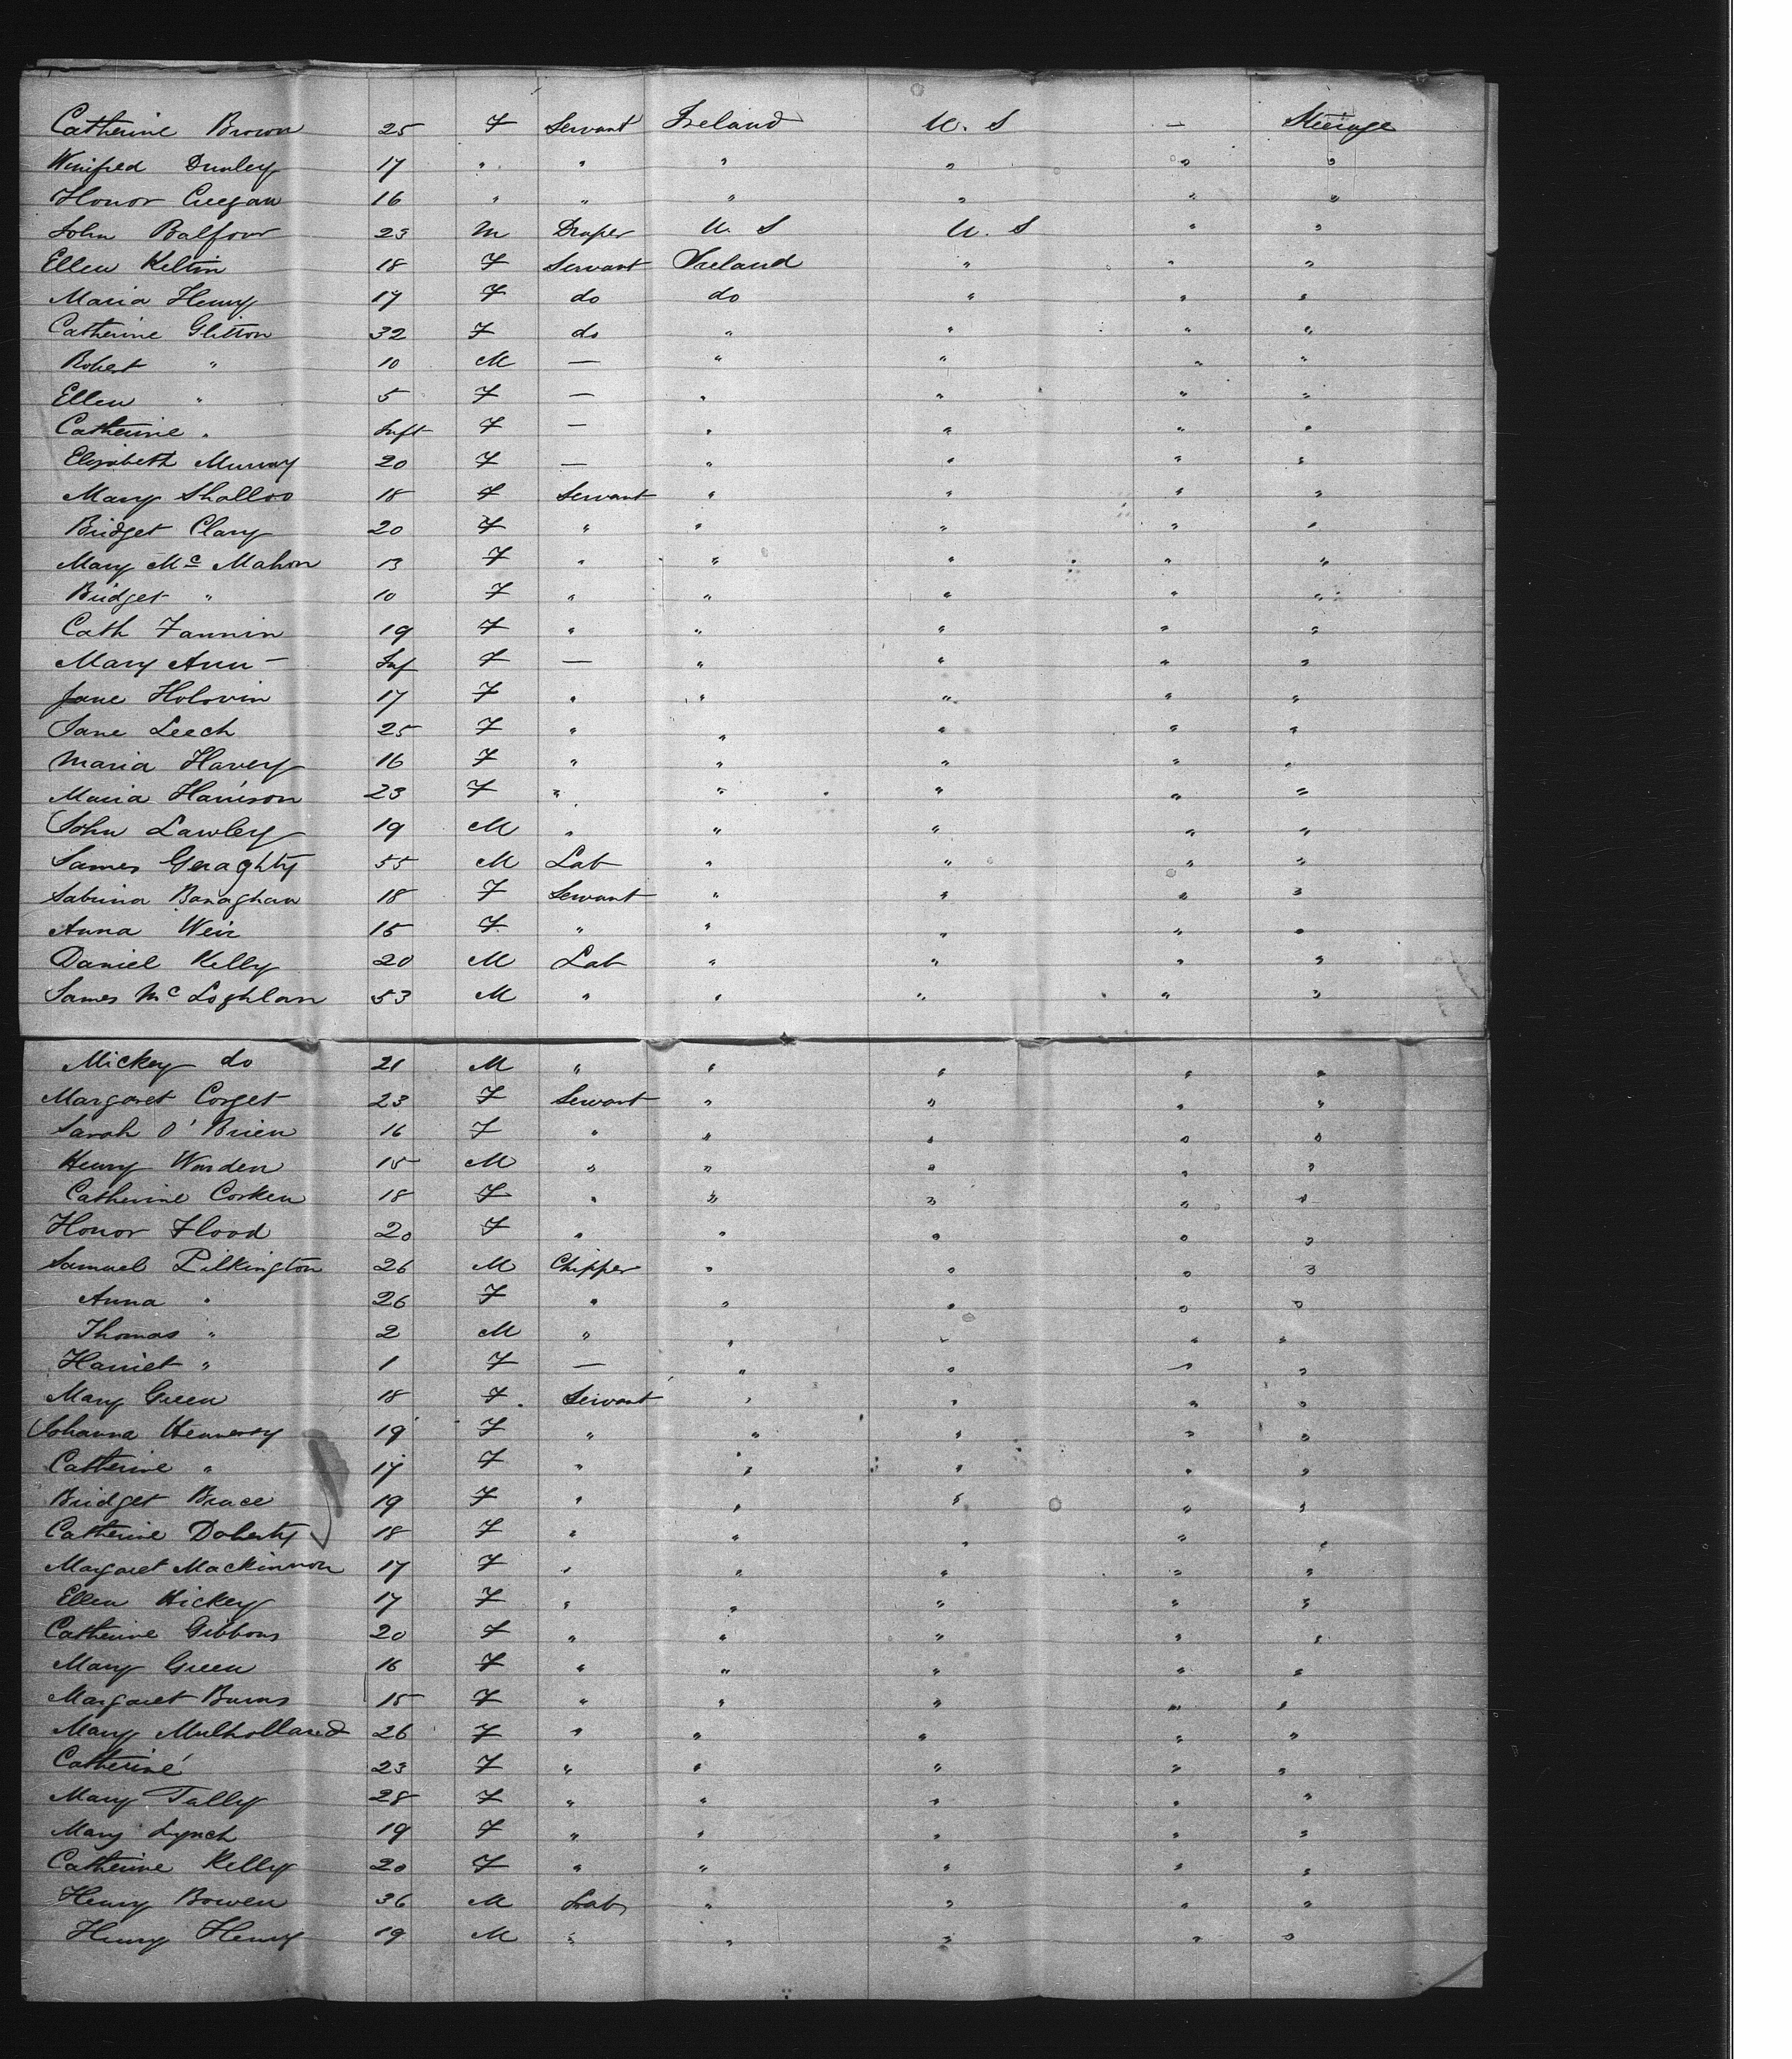 Catherine Brown 25 F Servant Ireland U. S — Steerage
Winifred Dunley 17 " " " " " "
Honor Creegan 16 " " " " " "
John Balfour 23 M Draper U. S U. S " "
Ellen Keltin 18 F Servant Ireland " " "
Maria Henry 17 F do do " " "
Catherine Glitton 32 F do " " " "
Robert " 10 M — " " " "
Ellen " 5 F — " " " "
Catherine " Inft F — " " " "
Elizabeth Murray 20 F — " " " "
Mary Shalloo 18 F Servant " " " "
Bridget Clary 20 F " " " " "
Mary Mc Mahon 13 F " " " " "
Bridget " 10 F " " " " "
Cath Fannin 19 F " " " " "
Mary Ann — Inf F — " " " "
Jane Holovin 17 F " " " " "
Jane Leech 25 F " " " " "
Maria Havery 16 F " " " " "
Maria Harrison 23 F " " " " "
John Lawley 19 M " " " " "
James Geraghty 55 M Lab " " " "
Sabina Banaghan 18 F Servant " " " "
Anna Weir 15 F " " " " "
Daniel Kelly 20 M Lab " " " "
James Mc Loghlan 53 M " " " " "
Mickey do 21 M " " " " "
Margaret Corget 23 F Servant " " " "
Sarah O'Brien 16 F " " " " "
Henry Warden 15 M " " " " "
Catherine Corken 18 F " " " " "
Honor Flood 20 F " " " " "
Samuel Pilkington 26 M Chipper " " " "
Anna " 26 F " " " " "
Thomas " 2 M " " " " "
Harriet " 1 F — " " " "
Mary Green 18 F Servant " " " "
Johanna Hennessy 19 F " " " " "
Catherine " 17 F " " " " "
Bridget Brace 19 F " " " " "
Catherine Doherty 18 F " " " " "
Margaret Mackinnon 17 F " " " " "
Ellen Hickey 17 F " " " " "
Catherine Gibbons 20 F " " " " "
Mary Green 16 F " " " " "
Margaret Burns 15 F " " " " "
Mary Mulholland 26 F " " " " "
Catherine 23 F " " " " "
Mary Tally 28 F " " " " "
Mary Lynch 19 F " " " " "
Catherine Kelly 20 F " " " " "
Henry Bowen 36 M Lab " " " "
Henry Henry 19 M " " " " "